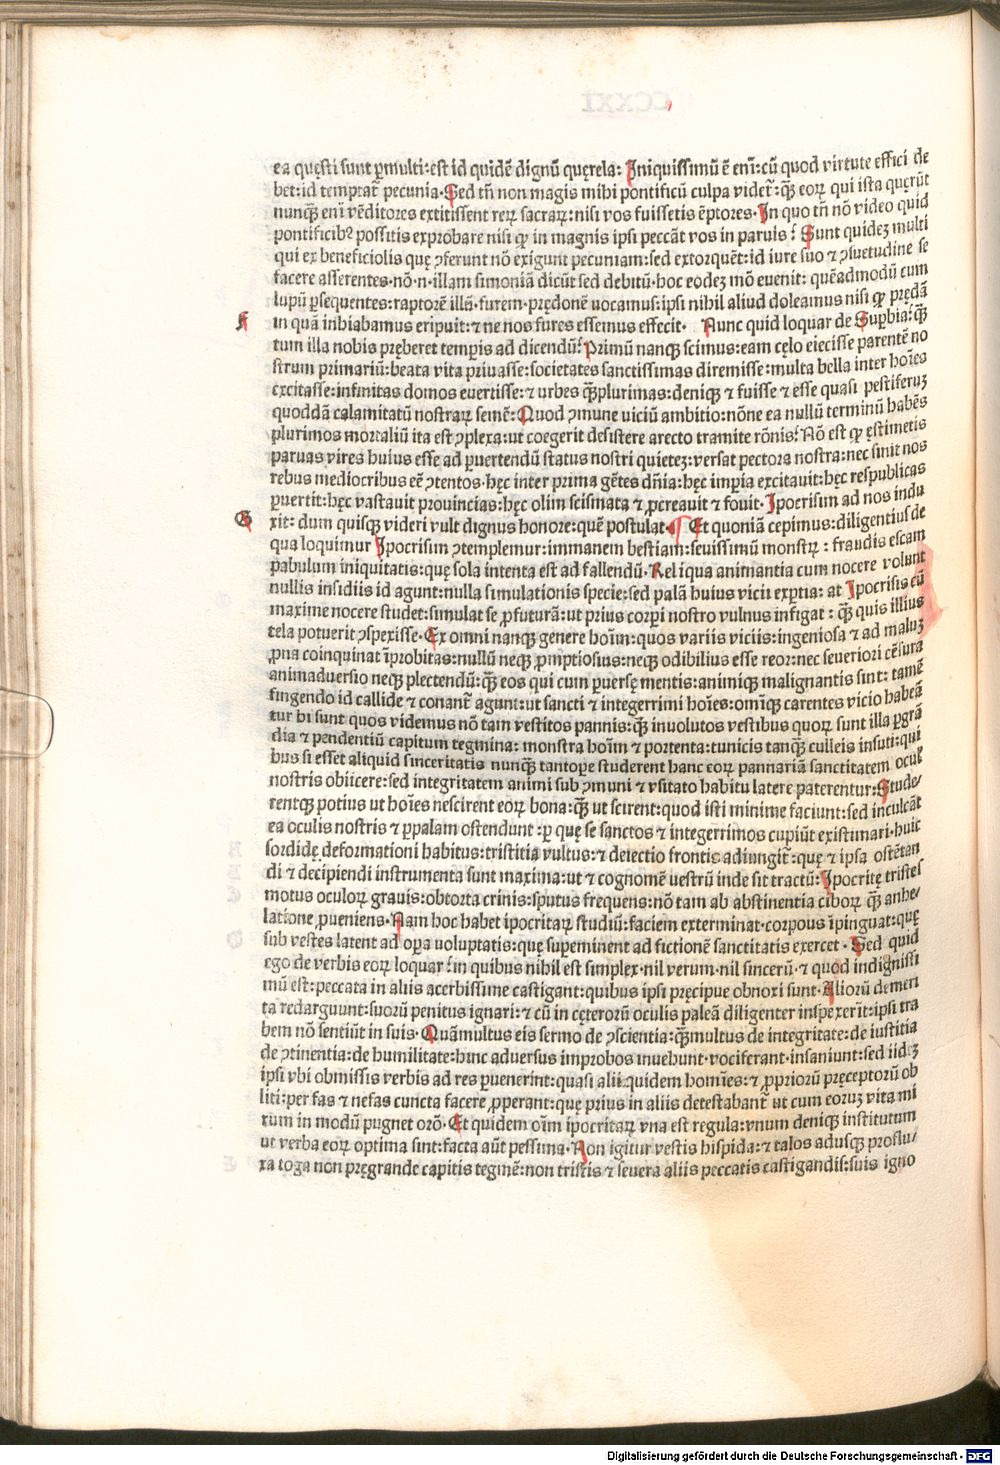 ea questi sunt ꝑmulti: est id quidē dignū quęrela: Iniquissimū ē enī: cū quod virtute effici de
bet: id temptat᷑ pecunia. Sed tñ non magis mihi pontificū culpa videt᷑: q̄ꝫ eoꝝ qui ista quęrūt
nunq̄ꝫ enī vēditores extitissent reꝝ sacraꝝ: nisi vos fuissetis ēptores. In quo tñ nō video quid
pontificibꝰ possitis exprobare nisi ꝙ in magnis ipsi peccāt vos in paruis? Sunt quidez multi
qui ex beneficiolis quę ꝯferunt nō exigunt pecuniam: sed extorquēt: id iure suo ⁊ ꝯsuetudine se
facere asserentes. nō. n. illam simoniā dicūt sed debitū. hoc eodez mō euenit: quēadmodū cum
lupū ꝑsequentes: raptorē illū. furem. prędonē vocamus: ipsi nihil aliud doleamus nisi ꝙ prędā
K in quā inhiabamus eripuit: ⁊ ne nos fures essemus effecit. Nunc quid loquar de Suꝑbia: q̄ꝫ
tum illa nobis pręberet temꝑis ad dicendū? Primū nanqꝫ scimus: eam cęlo eiecisse parentē no
strum primariū: beata vita priuasse: societates sanctissimas diremisse: multa bella inter hoīes
excitasse: infinitas domos euertisse: ⁊ urbes q̄ꝫplurimas: deniqꝫ ⁊ fuisse ⁊ esse quasi pestiferuꝫ
quoddā calamitatū nostraꝝ semē: Quod ꝯmune viciū ambitio: nōne ea nullū terminū habēs
plurimos mortaliū ita est ꝯplexa: ut coegerit desistere a recto tramite rōnis? Nō est ꝙ ęstimetis
paruas vires huius esse ad ꝑuertendū status nostri quietez: versat pectora nostra: nec sinit nos
rebus mediocribus eē ꝯtentos. hęc inter prima gētes dn̄ia: hęc imꝑia excitauit: hęc respublicas
ꝑuertit: hęc vastauit prouincias: hęc olim scismata ⁊ ꝓcreauit ⁊ fouit. Ipocrisim ad nos indu
G xit: dum quisqꝫ videri vult dignus honore: quē postulat. Et quoniā cepimus: diligentius de
qua loquimur Ipocrisim ꝯtemplemur: immanem bestiam: seuissimū monstꝝ: fraudis escam
pabulum iniquitatis: quę sola intenta est ad fallendū. Reliqua animantia cum nocere volunt
nullis insidiis id agunt: nulla simulationis specie: sed palā huius vicii exꝑtia: at Ipocrisis cū
maxime nocere studet: simulat se ꝓfuturā: ut prius corꝑi nostro vulnus infigat: q̄ꝫ quis illius
tela potuerit ꝯspexisse. Ex omni nanqꝫ genere hoīm: quos variis viciis: ingeniosa ⁊ ad maluꝫ
ꝓna coinquinat īprobitas: nullū neqꝫ ꝓmptiosius: neqꝫ odibilius esse reor: nec seueriori cēsura
animaduersio neqꝫ plectendū: q̄ꝫ eos qui cum ꝑuersę mentis: animiqꝫ malignantis sint: tamē
fingendo id callide ⁊ conant᷑ agunt: ut sancti ⁊ integerrimi hoīes: omīqꝫ carentes vicio habeā
tur hi sunt quos videmus nō tam vestitos pannis: q̄ꝫ inuolutos vestibus quoꝝ sunt illa ꝑgrā
dia ⁊ pendentiū capitum tegmina: monstra hoīm ⁊ portenta: tunicis tanq̄ꝫ culleis insuti: qui
bus si esset aliquid sinceritatis nunq̄ꝫ tantoꝑe studerent hanc eoꝝ pannariā sanctitatem oculis
nostris obiicere: sed integritatem animi sub ꝯmuni ⁊ vsitato habitu latere paterentur: Stude⸗
rentqꝫ potius ut hoīes nescirent eoꝝ bona: q̄ꝫ ut scirent: quod isti minime faciunt: sed inculcāt
ea oculis nostris ⁊ ꝑpalam ostendunt: ꝑ quę se sanctos ⁊ integerrimos cupiūt existimari. huic
sordidę deformationi habitus: tristitia vultus: ⁊ deiectio frontis adiungit᷑: quę ⁊ ipsa ostētan
di ⁊ decipiendi instrumenta sunt maxima: ut ⁊ cognomē vestrū inde sit tractū: Ipocritę tristes
motus oculoꝝ grauis: obtorta crinis: sputus frequens: nō tam ab abstinentia ciboꝝ q̄ꝫ anhe⸗
latione ꝓueniens. Nam hoc habet ipocritaꝝ studiū: faciem exterminat. corpous īpinguat: quę
sub vestes latent ad oꝑa uoluptatis: quę suꝑeminent ad fictionē sanctitatis exercet. Sed quid
ego de verbis eoꝝ loquar? in quibus nihil est simplex. nil verum. nil sincerū. ⁊ quod indignissi
mū est: peccata in aliis acerbissime castigant: quibus ipsi pręcipue obnoxi sunt. Aliorū demeri
ta redarguunt: suorū penitus ignari: ⁊ cū in cęterorū oculis paleā diligenter inspexerīt: ipsi tra
bem nō sentiūt in suis. Quāmultus eis sermo de ꝯscientia: q̄ꝫmultus de integritate: de iustitia
de ꝯtinentia: de humilitate: hinc aduersus improbos inuehunt. vociferant. insaniunt: sed iidꝫ
ipsi vbi obmissis verbis ad res ꝑuenerint: quasi alii quidem homīes: ⁊ ꝓpriorū pręceptorū ob
liti: per fas ⁊ nefas cuncta facere ꝓperant: quę prius in aliis detestabant᷑ ut cum eoruꝫ vita mi
rum in modū pugnet orō. Et quidem oīm ipocritaꝝ vna est regula: vnum deniqꝫ institutum
ut verba eoꝝ optima sint: facta aūt pessima. Non igitur vestis hispida: ⁊ talos adusqꝫ proflu⸗
xa toga non pręgrande capitis tegmē: non tristis ⁊ seuera aliis peccatis castigandis: suis igno
Digitalisierung gefördert durch die Deutsche Forschungsgemeinschaft - DFG